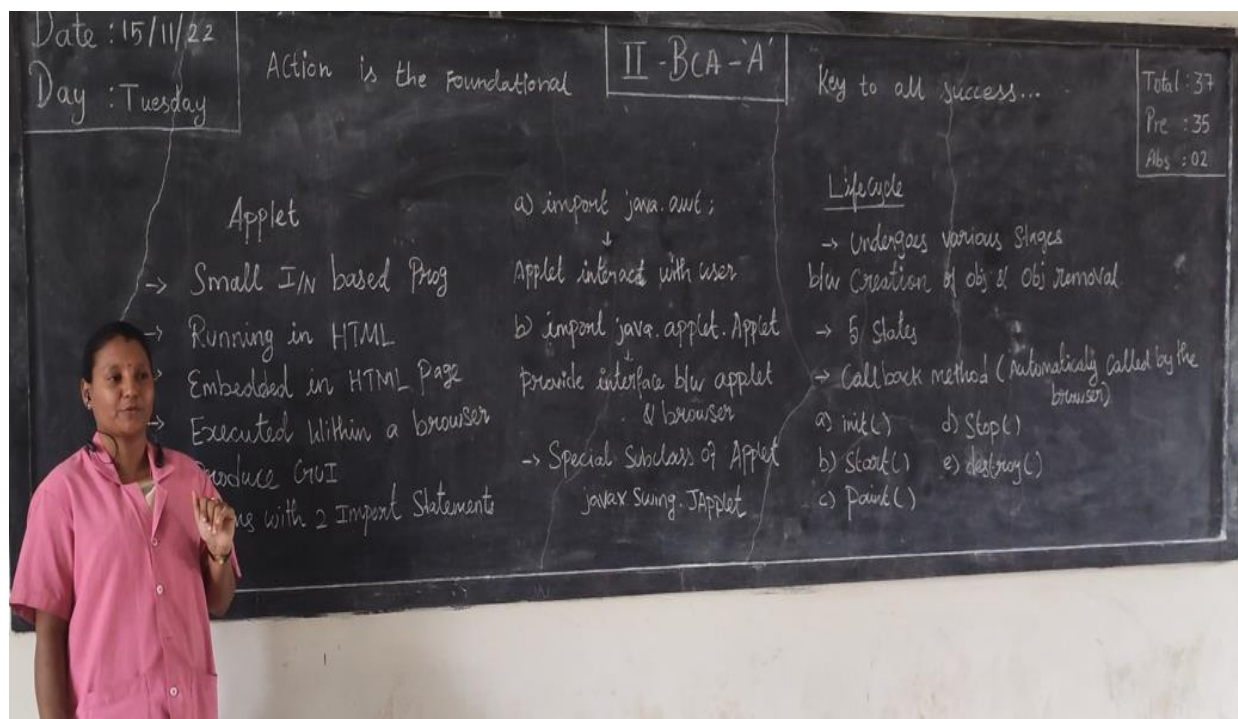 Date : 15/11/22
Day : Tuesday
Action is the Foundational
II - BCA - 'A'
Key to all success...
Total : 37
Pre : 35
Abs : 02
Applet
→ Small I/N based Prog
→ Running in HTML
→ Embedded in HTML Page
→ Executed Within a browser
Produce GUI
with 2 Import Statements
a) import java.awt ;
↓
Applet interact with user
b) import java.applet.Applet
↓
provide interface b/w applet
& browser
→ Special Subclass of Applet
javax.Swing.JApplet
LifeCycle
→ Undergoes various Stages
b/w Creation of obj & Obj removal
→ 5 States
→ Call back method (Automatically Called by the
browser)
a) init() d) Stop()
b) Start() e) destroy()
c) Paint()